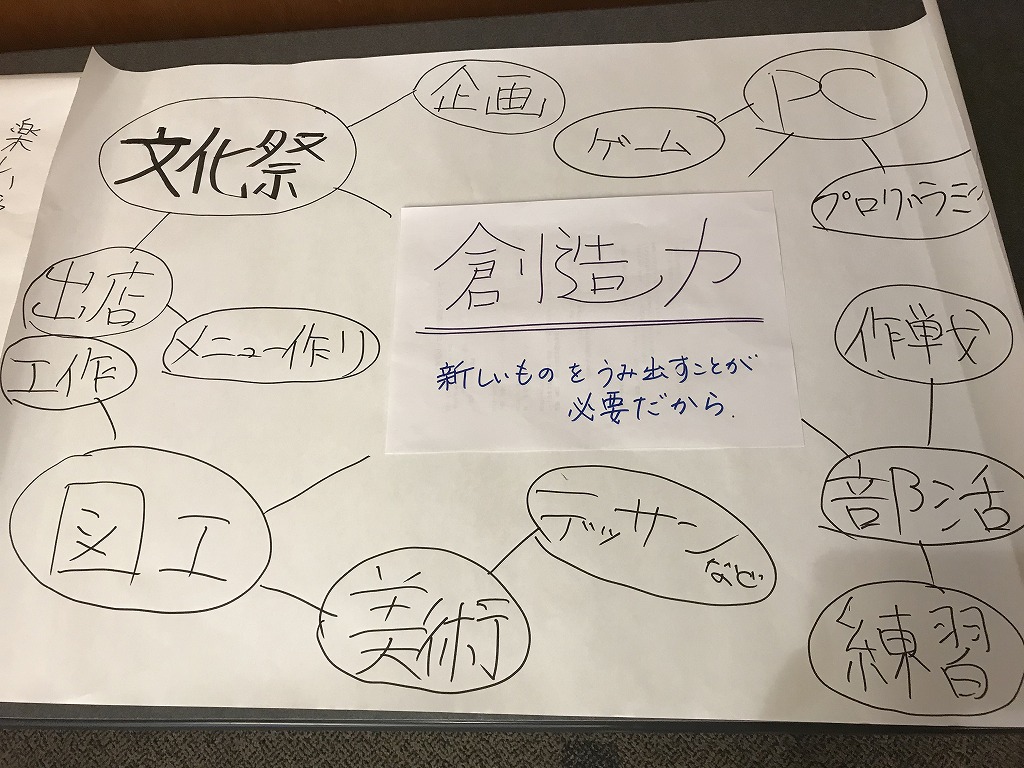 楽しい
文化祭
企画
ゲーム
PC
プログラミ
出店
メニュー作り
工作
創造力
新しいものをうみ出すことが
必要だから.
作戦
部活
練習
図工
美術
デッサン
など